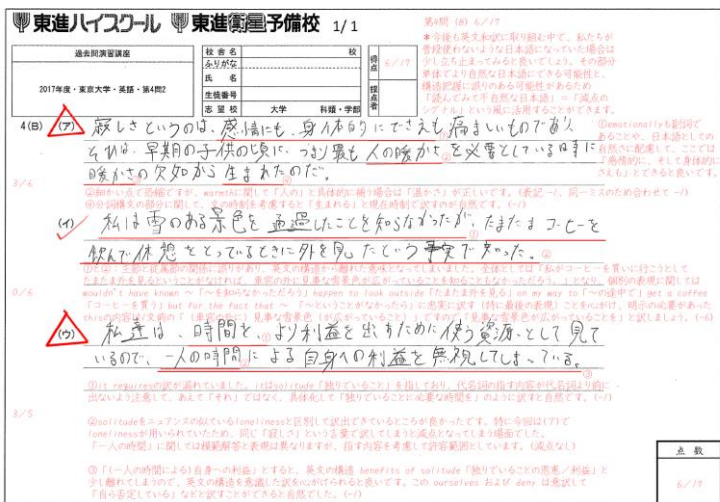 東進ハイスクール 東進衛星予備校 1/1
過去問演習講座
2017年度・東京大学・英語・第4問2
校舎名 校
ふりがな
氏 名
生徒番号
志望校 大学 科類・学部
得点 6/17
採点者
第4問 (B) 6/17
*今後も英文和訳に取り組む中で、私たちが
普段使わないような日本語になっていた場合は
少し立ち止まってみると良いでしょう。その部分
単体でより自然な日本語にできる可能性と、
構造把握に誤りのある可能性があるため
「読んでみて不自然な日本語」=「減点の
シグナル」という風に活用することができます。
4(B) (ア) 寂しさというのは、感情にも、身体的にでさえも痛ましいものであり
それは、早期の子供の頃に、つまり最も人の暖かさを必要としている時に
暖かさの欠如から生まれたのだ。
①emotionallyも副詞で
あることや、日本語としての
自然さに配慮して、ここでは
「感情的に、そして身体的に
さえも」とできると良いです。
3/6
②細かい点で恐縮ですが、warmthに関して「人の」と具体的に補う場合は「温かさ」が正しいです。(表記-/、同一ミスのため合わせて-/)
④分詞構文の部分に関して、文の時制を考慮すると「生まれる」と現在時制で訳すのが自然です。(-/)
(イ) 私は雪のある景色を通過したことを知らなかったが、たまたまコーヒーを
飲んで休憩をとっているときに外を見たという事実で知った。
0/6
①と②:主節と従属節の関係に誤りがあり、英文の構造から離れた意味となってしまいました。全体としては「私がコーヒーを買いに行こうとして
たまたま外を見るということがなければ、車窓の外に見事な雪景色が広がっていることを知ることもなかっただろう。」となり、個別の表現に関しては
wouldn't have known ~「~を知らなかっただろう」happen to look outside「たまたま外を見る」on my way to ~「~の途中で」get a coffee
「コーヒーを買う」but for the fact that「~ということがなかったら」に忠実に訳す(特に最後の表現)ことを心がけ、明示の必要があった
thisの内容は/文前の「(車窓の外に)見事な雪景色(が広がっていること)」ですので「見事な雪景色が広がっていることを」と訳しましょう。(-6)
(ウ) 私達は、時間を、より利益を出すために使う資源として見て
いるので、一人の時間による自身への利益を無視してしまっている。
①it requiresの訳が漏れていました。itはsolitude「独りでいること」を指しており、代名詞の指す内容が代名詞より前に
出ないよう注意して、あえて「それ」ではなく、具体化して「独りでいることに必要な時間を」のように訳すと自然です。(-/)
3/5
②solitudeをニュアンスの似ているlonelinessと区別して訳出できているところが良かったです。特に今回は(ア)で
lonelinessが用いられていたため、同じ「寂しさ」という言葉で訳してしまうと減点となってしまう場面でした。
「一人の時間」に関しては模範解答と表現は異なりますが、指す内容を考慮して許容範囲としています。(減点なし)
③「(一人の時間による)自身への利益」とすると、英文の構造 benefits of solitude「独りでいることの恩恵/利益」と
少し離れてしまうので、英文の構造を意識した訳を心がけられると良いです。この ourselves および deny は意訳して
「自ら否定している」などと訳すことができると自然でした。(-/)
点 数
6/17